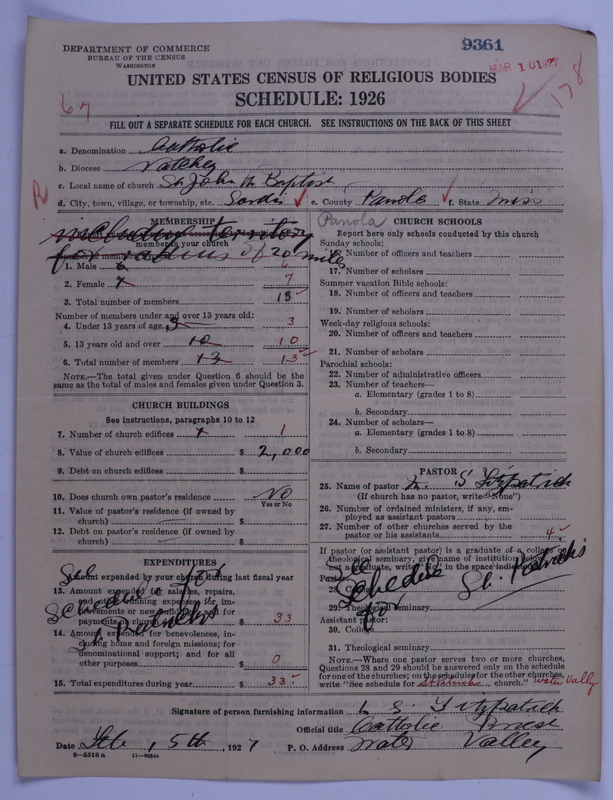 DEPARTMENT OF COMMERCE
BUREAU OF THE CENSUS
WASHINGTON
9361
MAR 10 1927
178
67
UNITED STATES CENSUS OF RELIGIOUS BODIES
SCHEDULE: 1926
FILL OUT A SEPARATE SCHEDULE FOR EACH CHURCH. SEE INSTRUCTIONS ON THE BACK OF THIS SHEET
a. Denomination Catholic
b. Diocese Natchez
c. Local name of church St John the Baptist
R
d. City, town, village, or township, etc. Sardis e. County Panola f. State Miss
MEMBERSHIP
including territory
member in your church
for radius of 20 miles
1. Male 6 6
2. Female 7 7
3. Total number of members 13
Number of members under and over 13 years old:
4. Under 13 years of age 3 3
5. 13 years old and over 10 10
6. Total number of members 13 13
NOTE.—The total given under Question 6 should be
the same as the total of males and females given under Question 3.
CHURCH BUILDINGS
See instructions, paragraphs 10 to 12
7. Number of church edifices 1 1
8. Value of church edifices $ 2,000
9. Debt on church edifices $
10. Does church own pastor's residence No
Yes or No
11. Value of pastor's residence (if owned by
church) $
12. Debt on pastor's residence (if owned by
church) $
EXPENDITURES
Amount expended by your church during last fiscal year
See Schedule for St. Patrick's
13. Amount expended for salaries, repairs,
and other running expenses; for im-
provements or new building; and for
payments on church $ 33
14. Amount expended for benevolences, in-
cluding home and foreign missions; for
denominational support; and for all
other purposes $ 0
15. Total expenditures during year $ 33
Panola
CHURCH SCHOOLS
Report here only schools conducted by this church
Sunday schools:
16. Number of officers and teachers
17. Number of scholars
Summer vacation Bible schools:
18. Number of officers and teachers
19. Number of scholars
Week-day religious schools:
20. Number of officers and teachers
21. Number of scholars
Parochial schools:
22. Number of administrative officers
23. Number of teachers—
a. Elementary (grades 1 to 8)
b. Secondary
24. Number of scholars—
a. Elementary (grades 1 to 8)
b. Secondary
PASTOR
25. Name of pastor L. S Fitzpatrick
(If church has no pastor, write "None")
26. Number of ordained ministers, if any, em-
ployed as assistant pastors
27. Number of other churches served by the
pastor or his assistants 4
If pastor (or assistant pastor) is a graduate of a college or
theological seminary, give name of institution; if
not a graduate, write "No" in the space indicated
See Schedule for St. Patrick's
Pastor:
28.
29. Theological seminary
Assistant pastor:
30. College
31. Theological seminary
NOTE.—Where one pastor serves two or more churches,
Questions 28 and 29 should be answered only on the schedule
for one of the churches; on the schedule for the other churches,
write "See schedule for St Patricks church." Water Valley
Signature of person furnishing information L. S. Fitzpatrick
Official title Catholic Priest
Date Feb, 5th, 1927 P. O. Address Water Valley
8—5518 a